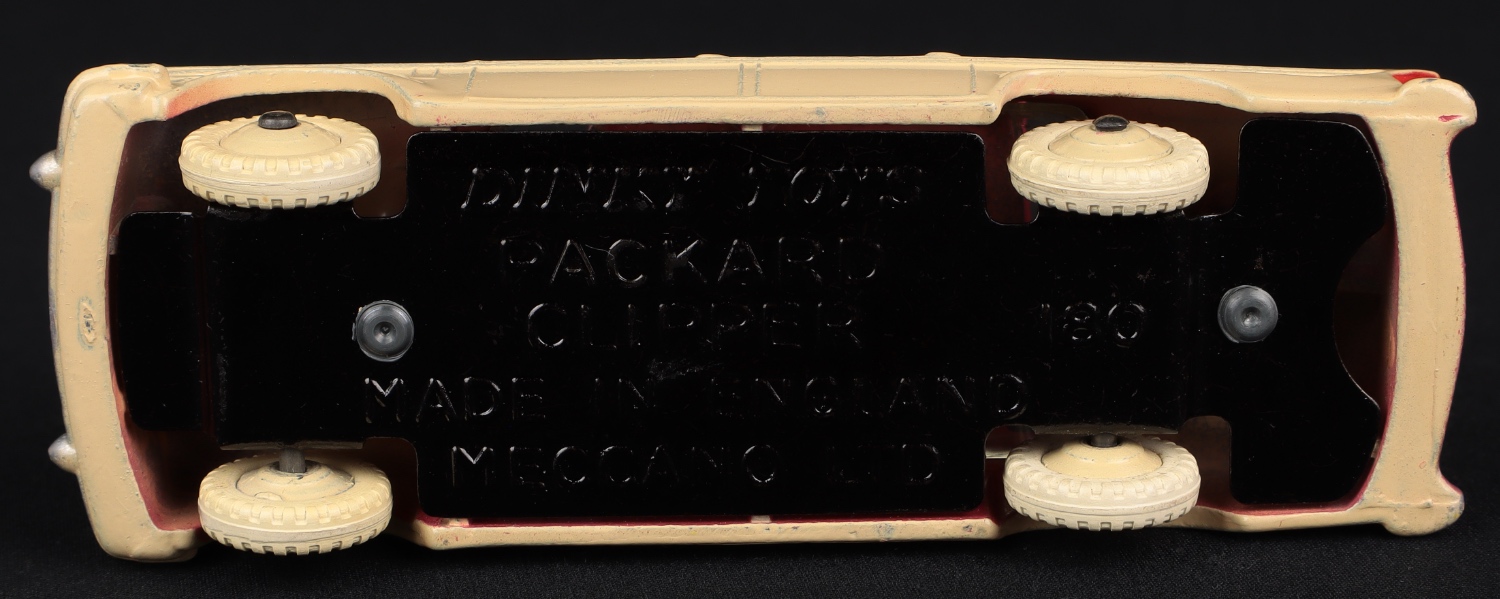 DINKY TOYS
PACKARD
CLIPPER 180
MADE IN ENGLAND
MECCANO LTD